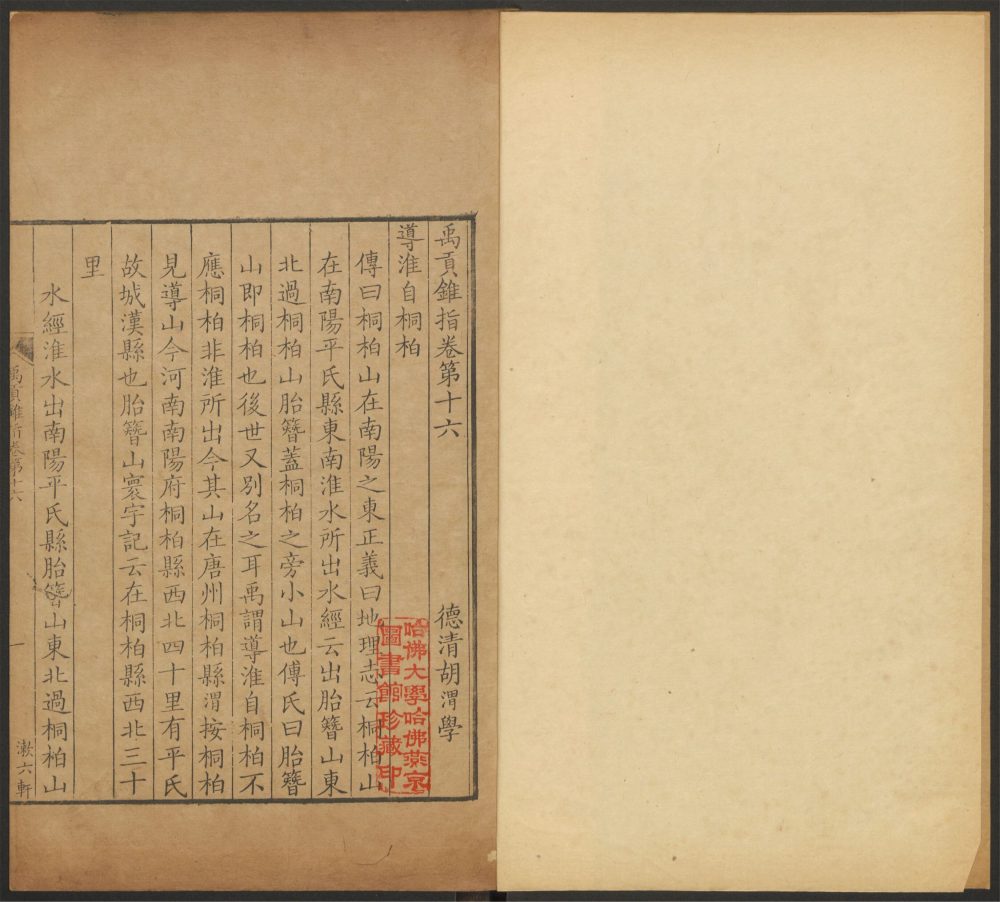 禹貢錐指卷第十六
德清胡渭學
導淮自桐柏
傳曰桐柏山在南陽之東正義曰地理志云桐柏山
在南陽平氏縣東南淮水所出水經云出胎簪山東
北過桐柏山胎簪蓋桐柏之旁小山也傅氏曰胎簪
山即桐柏也後世又別名之耳禹謂導淮自桐柏不
應桐柏非淮所出今其山在唐州桐柏縣渭按桐柏
見導山今河南南陽府桐柏縣西北四十里有平氏
故城漢縣也胎簪山寰宇記云在桐柏縣西北三十
里
水經淮水出南陽平氏縣胎簪山東北過桐柏山
禹貢錐指卷第十六
一
漱六軒
哈佛大學哈佛燕京
圖書館珍藏印